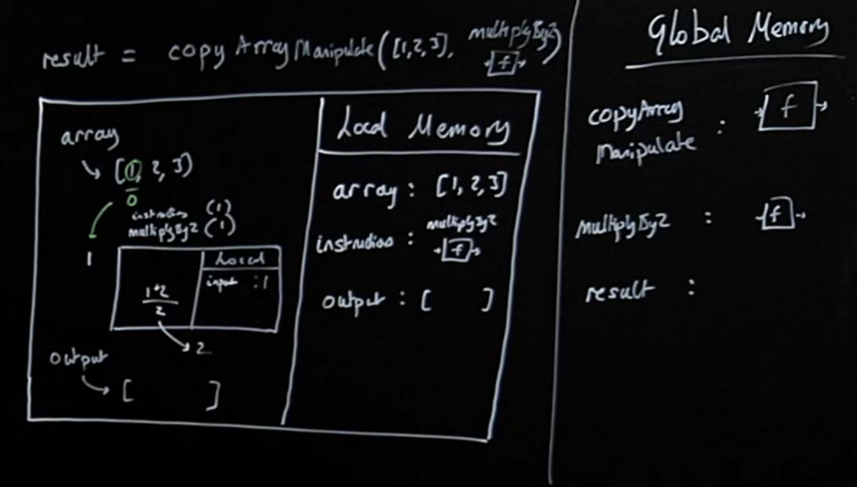 result = copy Array Manipulate ([1,2,3], multiplyBy2)
f
array
[1, 2, 3)
0
instructions (1)
multiplyBy2 (1)
1
Local
input : 1
1*2
2
2
output
[ ]
Local Memory
array : [1, 2, 3]
multiplyBy2
instructions : f
output : [ ]
Global Memory
copyArray
Manipulate : f
multiplyBy2 : f
result :